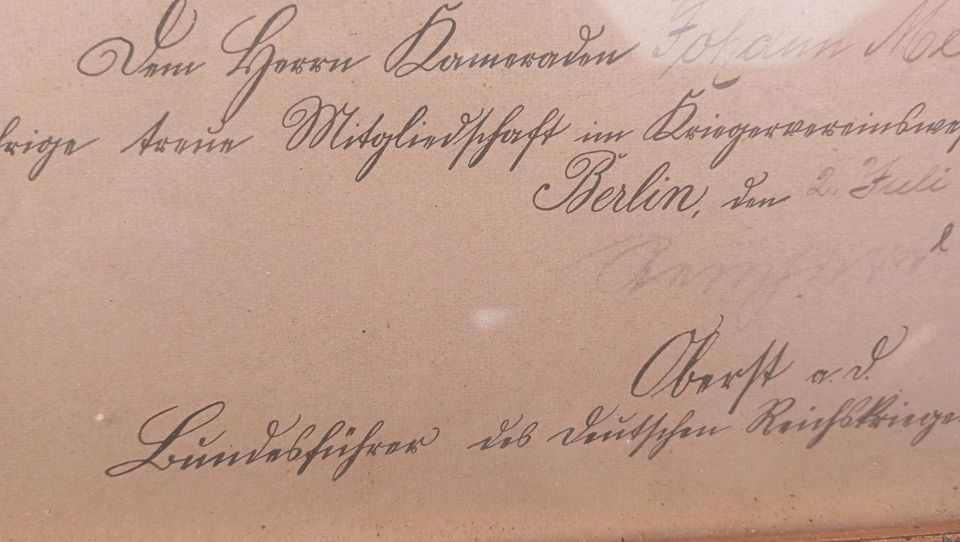 Dem Herrn Kameraden Johann Me
hrige treue Mitgliedschaft im Kriegervereinswe
Berlin, den 2. Juli
Oberst a. d.
Bundesführer des Deutschen Reichskriege